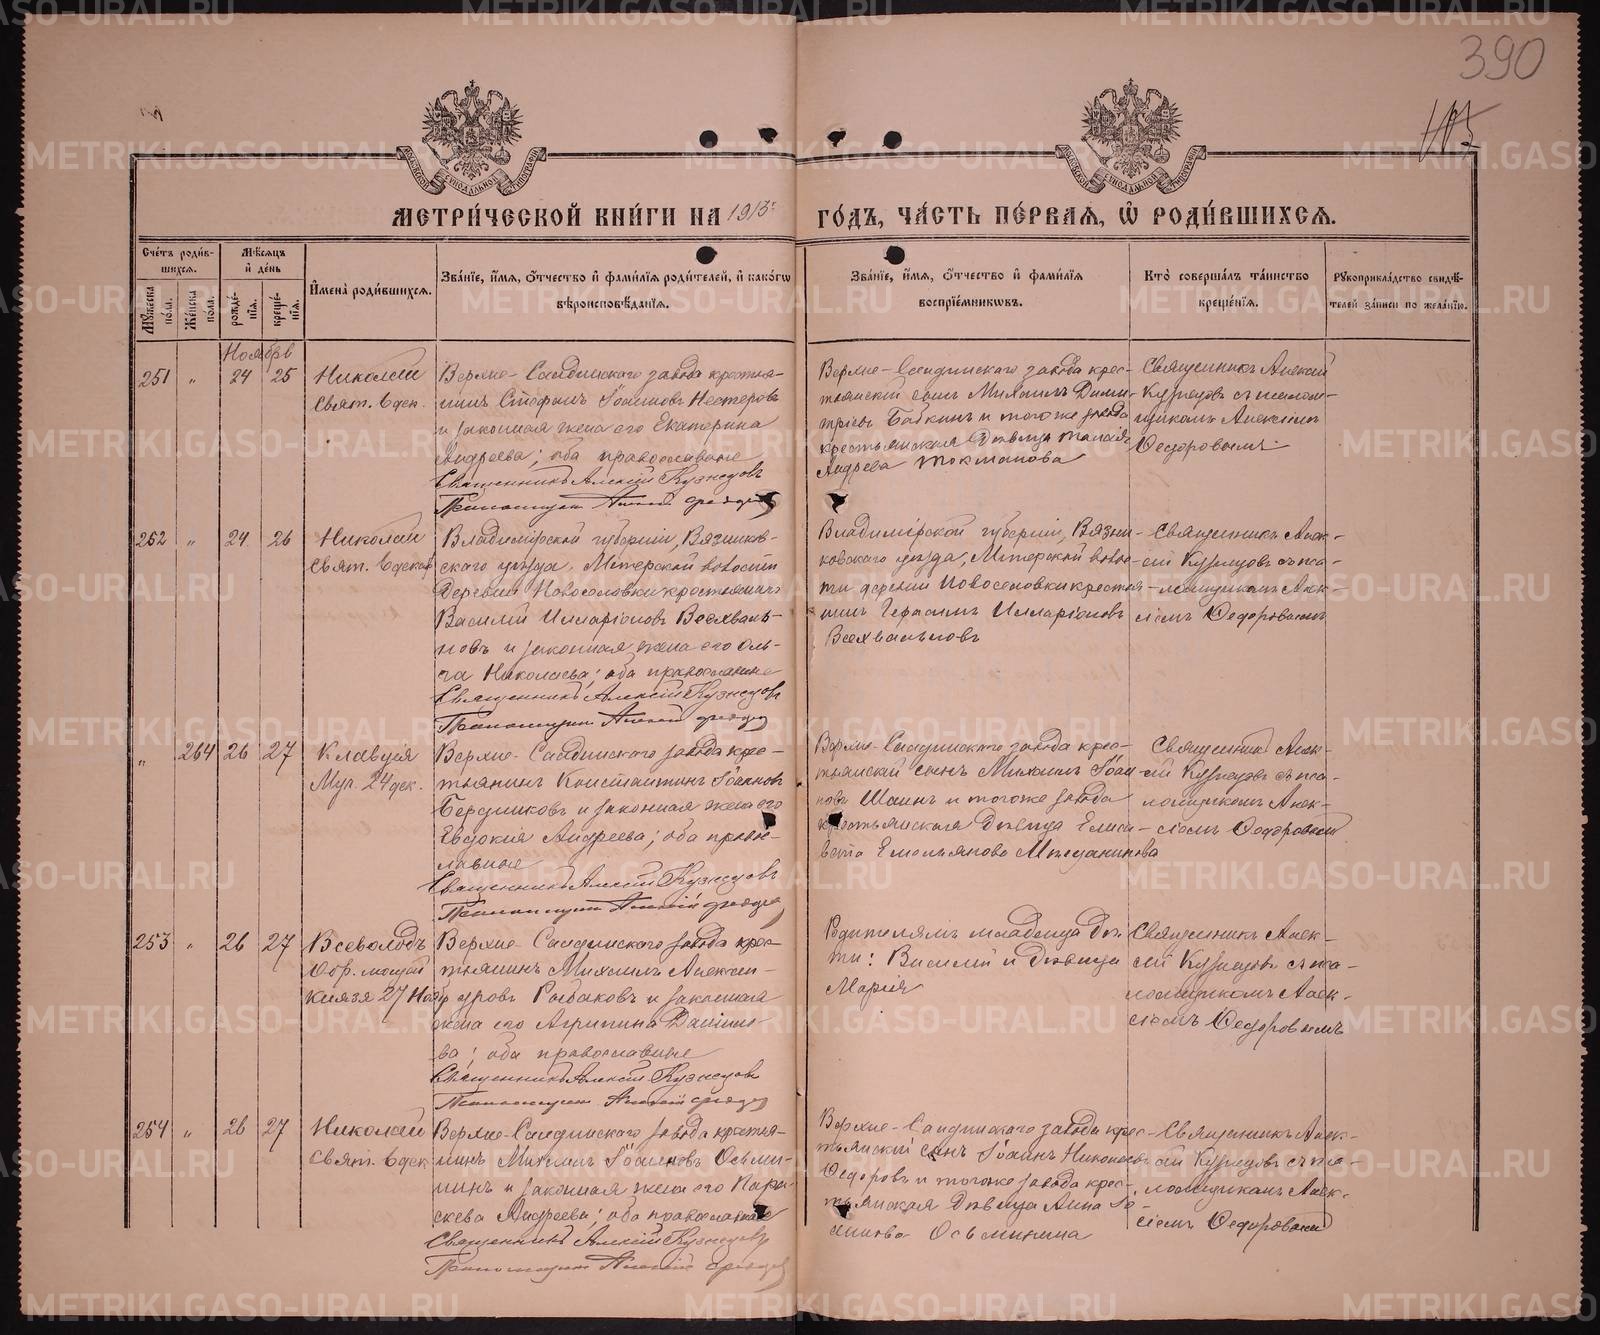 390
105
МЕТРИ́ЧЕСКОЙ КНИ́ГИ НА 1913 г.
ГО́ДЪ, ЧА́СТЬ ПЕ́РВАЯ, Ѿ РОДИ́ВШИХСЯ.
Сче́тъ роди́в-
шихся.
Мѣ́сяцъ
и҆ де́нь
Му́жеска по́ла.
Же́нска по́ла.
рожде́-
нїя.
креще́-
нїя.
И҆мена̀ роди́вшихся.
Зва́нїе, и҆́мя, ѻ҆́тчество и҆ фами́лїя роди́телей, и҆ како́гѡ
вѣроисповѣ́данїя.
Зва́нїе, и҆́мя, ѻ҆́тчество и҆ фами́лїя
воспрїе́мниковъ.
Кто̀ соверша́лъ та́инство
креще́нїя.
Рꙋкоприкла́дство свидѣ́-
телей за́писи по жела́нїю.
Ноябрь
251 " 24 25
Николай
Свят. 6 дек.
Верхне-Салдинскаго завода крестья-
нинъ Стефанъ Іоанновъ Нестеровъ
и законная жена его Екатерина
Андреева; оба православные
Священникъ Алексій Кузнецовъ
Псаломщикъ Алексій Федоров
Верхне-Салдинскаго завода крес-
тьянскій сынъ Михаилъ Дими-
тріевъ Бабкинъ и тогоже завода
крестьянская дѣвица
Андреева Токманова
Священникъ Алексій
Кузнецовъ съ псалом-
щикомъ Алексіемъ
Ѳедоровымъ
252 " 24 26
Николай
Свят. 6 декаб.
Владимірской губерніи, Вязников-
скаго уѣзда, Мстерской волости
деревни Новоселовки крестьянинъ
Василій Илларіоновъ Всехваль-
новъ и законная жена его Оль-
га Николаева; оба православные
Священникъ Алексій Кузнецовъ
Псаломщикъ Алексій Федоров
Владимірской губерніи, Вязни-
ковскаго уѣзда, Мстерской воло-
сти деревни Новоселовки крестья-
нинъ Герасимъ Илларіоновъ
Всехвальновъ
Священникъ Алек-
сій Кузнецовъ съ пса-
ломщикомъ Алек-
сіемъ Ѳедоровымъ
" 264 26 27
Клавдія
Муч. 24 дек.
Верхне-Салдинскаго завода крес-
тьянинъ Константинъ Іоанновъ
Бердниковъ и законная жена его
Евдокія Андреева; оба право-
славные
Священникъ Алексій Кузнецовъ
Псаломщикъ Алексій Федоров
Верхне-Салдинскаго завода крес-
тьянскій сынъ Михаилъ Іоан-
новъ Шаинъ и тогоже завода
крестьянская дѣвица Елиса-
вета Емельянова Мѣзданикова
Священникъ Алек-
сій Кузнецовъ съ пса-
ломщикомъ Алек-
сіемъ Ѳедоровымъ
253 " 26 27
Всеволодъ
Обр. мощей
князя 27 Нояб.
Верхне-Салдинскаго завода крес-
тьянинъ Михаилъ Алексан-
дровъ Рыбаковъ и законная
жена его Агрипина Данило-
ва; оба православные
Священникъ Алексій Кузнецовъ
Псаломщикъ Алексій Федоров
Родителямъ младенца дѣ-
ти: Василій и дѣвица
Марія
Священникъ Алек-
сій Кузнецовъ съ пса-
ломщикомъ Алек-
сіемъ Ѳедоровымъ
254 " 26 27
Николай
Свят. 6 дек.
Верхне-Салдинскаго завода крестья-
нинъ Михаилъ Іоанновъ Осьми-
нинъ и законная жена его Пара-
скева Андреева; оба православные
Священникъ Алексій Кузнецовъ
Псаломщикъ Алексій Федоров
Верхне-Салдинскаго завода крес-
тьянскій сынъ Іоаннъ Николаевъ
Ѳедоровъ и тогоже завода крес-
тьянская дѣвица Анна Іо-
аннова Осьминина
Священникъ Алек-
сій Кузнецовъ съ пса-
ломщикомъ Алек-
сіемъ Ѳедоровымъ
METRIKI.GASO-URAL.RU